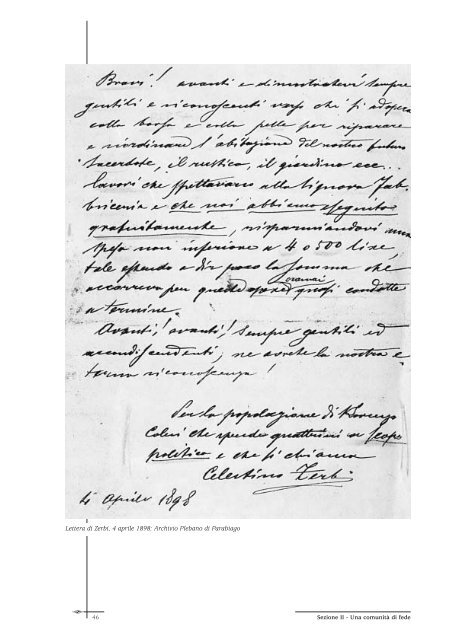 Bravi! avanti e dimostratevi sempre
gentili e riconoscenti verso chi si adopera
colla borsa e colla pelle per riparare
e riordinare l'abitazione del nostro futuro
Sacerdote, il rustico, il giardino ecc..
lavori che spettavano alla Signora Fab-
briceria e che noi abbiamo eseguito
gratuitamente, risparmiandovi una
spesa non inferiore a 4 o 500 lire,
tale essendo a dir poco la somma che
occorreva per queste opere oramai quasi condotte
a termine.
Avanti! avanti! Sempre gentili ed
accondiscendenti, ne avrete la nostra e-
terna riconoscenza!
Per la popolazione di
Colui che spende quattrini a scopo
politico e che si chiama
Celestino Zerbi
4 aprile 1898
Lettera di Zerbi, 4 aprile 1898: Archivio Plebano di Parabiago
46
Sezione II - Una comunità di fede